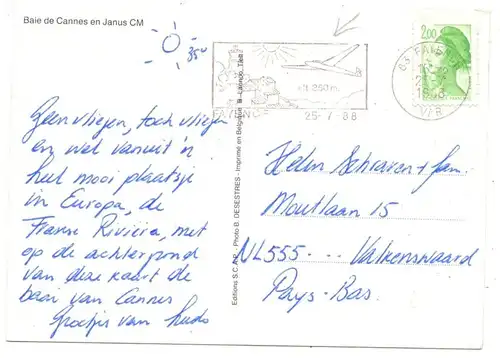 Baie de Cannes en Janus CM
35°
2,00
alt. 350 m.
FAYENCE
25-7-88
83 FAYENCE
VAR
Editions S.C.A.P. - Photo B. DESESTRES - Imprimé en Belgique
Geen vliegen, toch vliegen
en wel vanuit 'n
heel mooi plaatsje
in Europa, de
Franse Rivièra, met
op de achtergrond
van deze kaart de
baai van Cannes
Groetjes van
Helen Schraven + fam.
Moutlaan 15
NL555 - - - Valkenswaard
Pays-Bas.